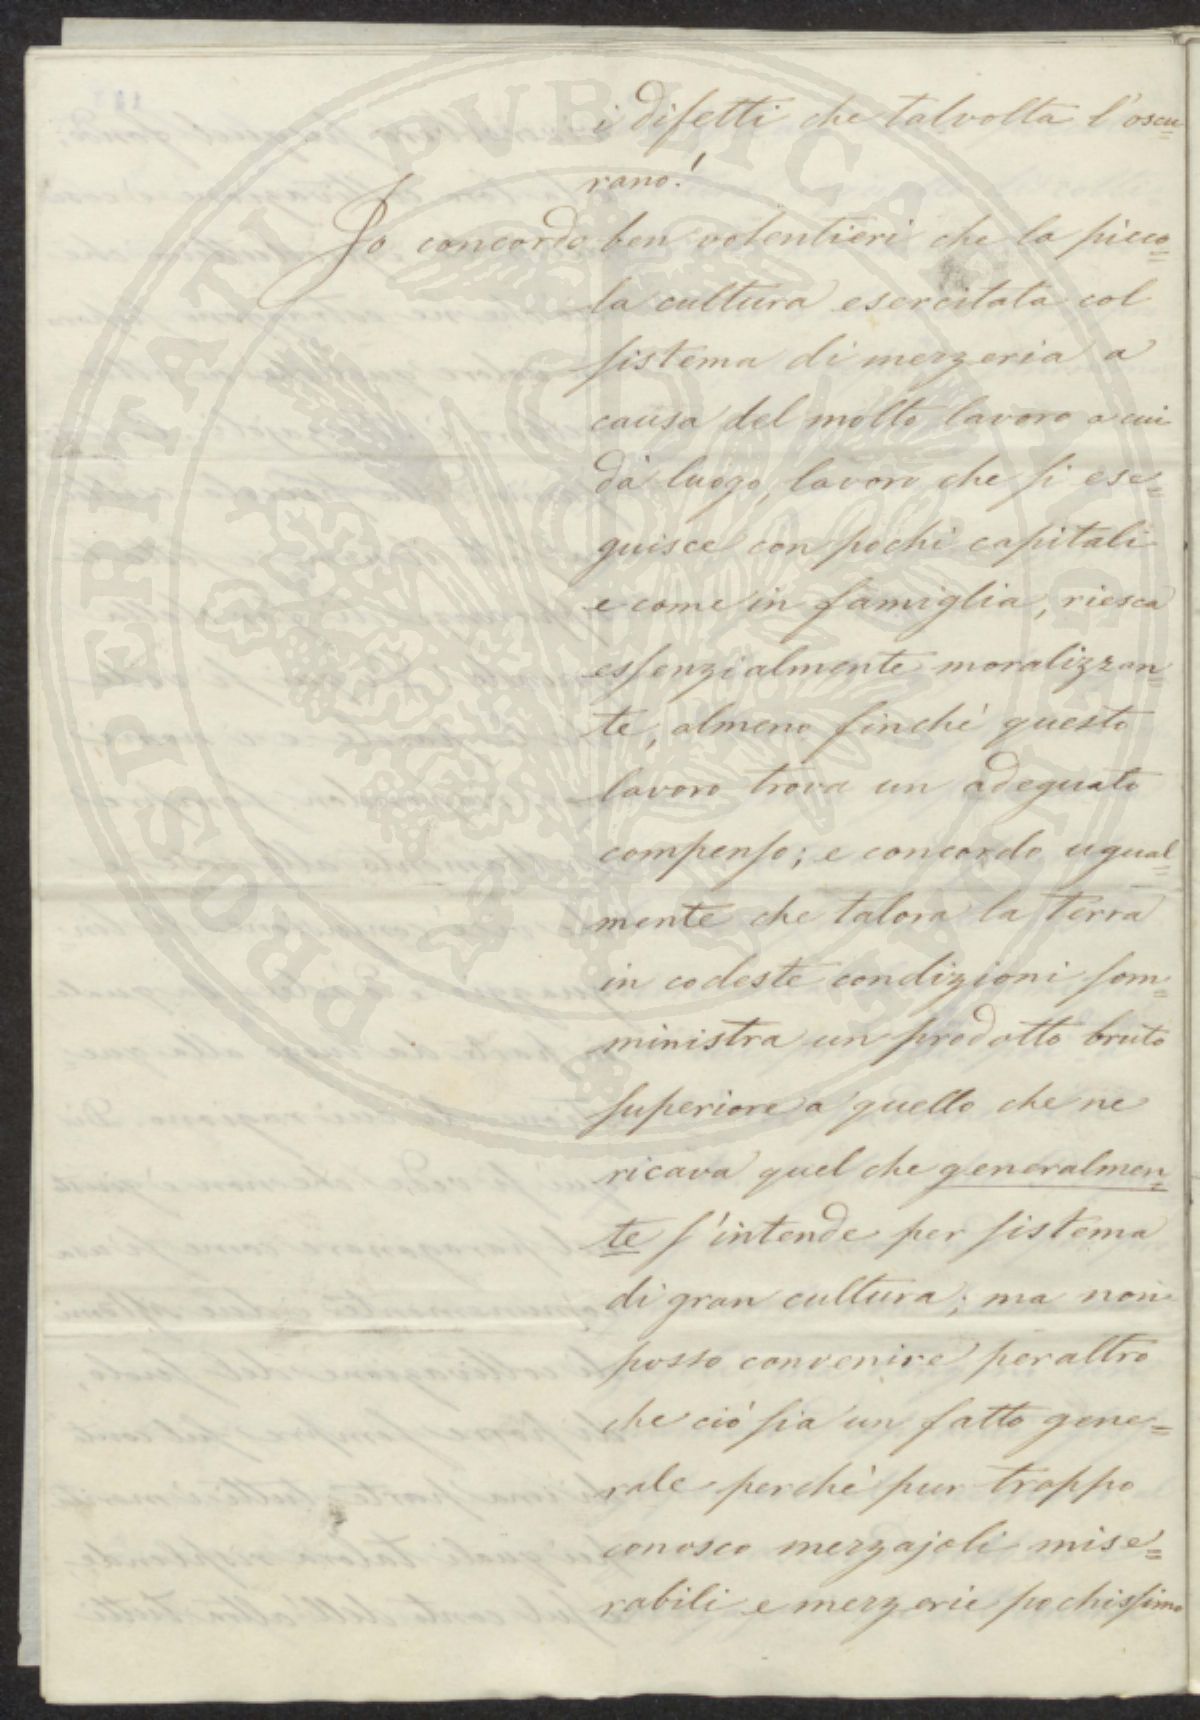 i difetti che talvolta l'oscu=
rano!
Io concordo ben volentieri che la picco=
la cultura esercitata col
sistema di mezzeria a
causa del molto lavoro a cui
dà luogo, lavoro che si ese=
guisce con pochi capitali
e come in famiglia, riesca
essenzialmente moralizzan=
te, almeno finchè questo
lavoro trova un adeguato
compenso; e concordo ugual=
mente che talora la terra
in codeste condizioni som=
ministra un prodotto bruto
superiore a quello che ne
ricava quel che generalmen=
te s'intende per sistema
di gran cultura; ma non
posso convenire peraltro
che ciò sia un fatto gene=
rale perchè pur troppo
conosco mezzajoli mise=
rabili e mezzerie pochissimo
PROSPERITATI PUBLICAE AUGENDAE